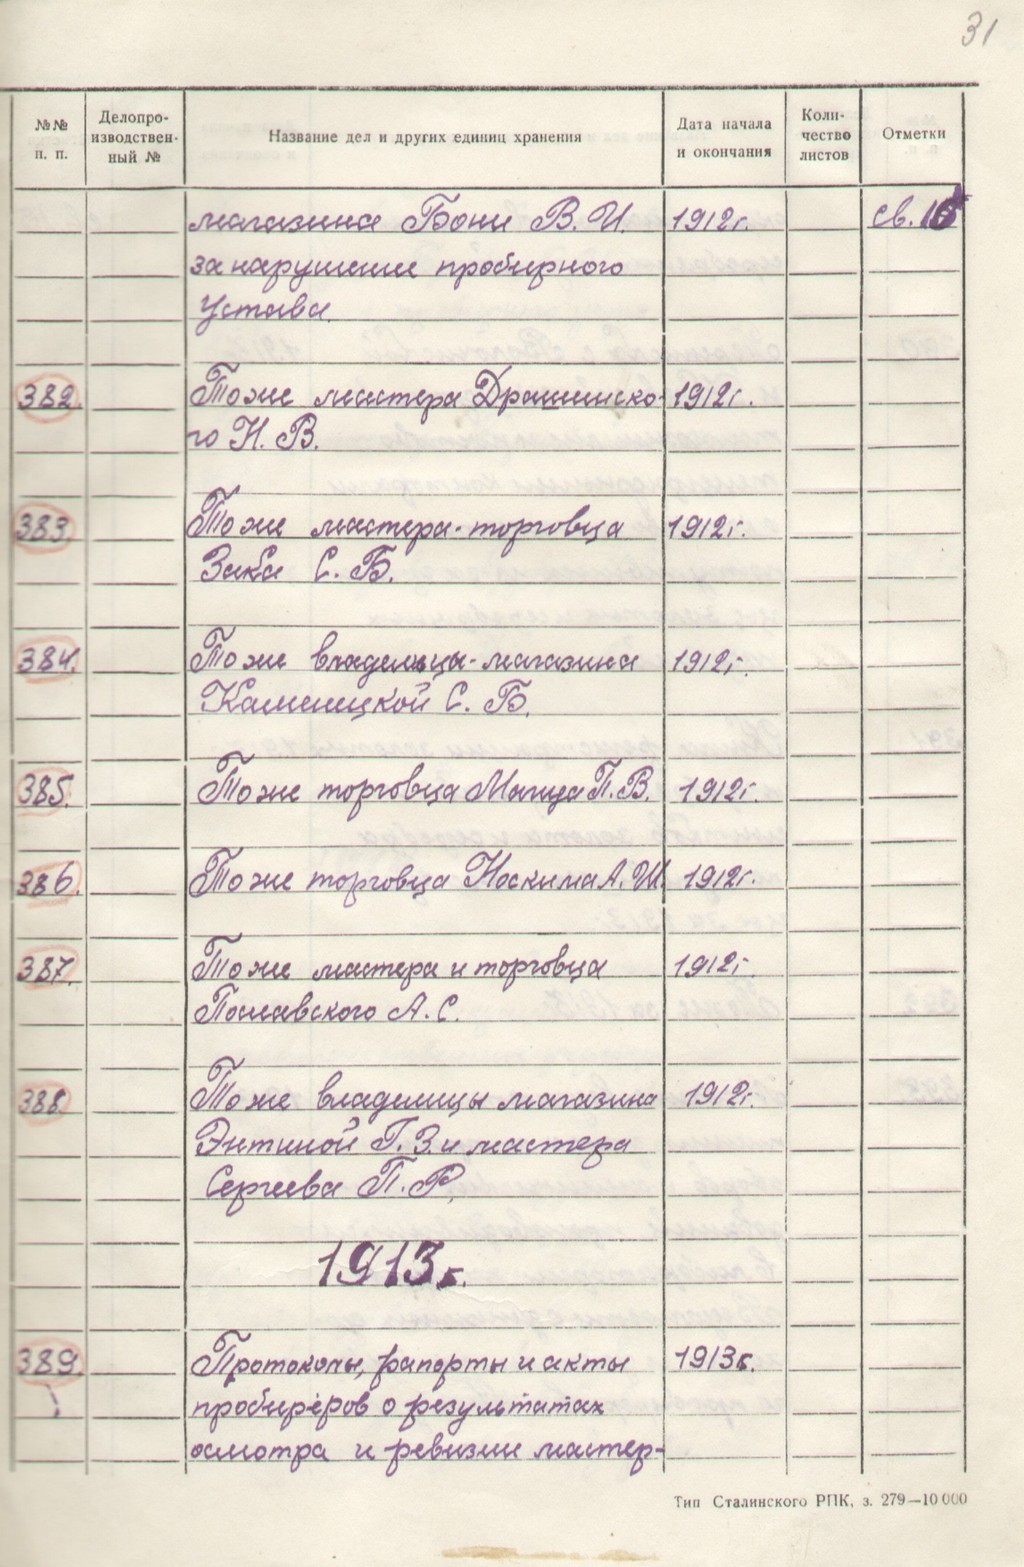 31
№№ п. п. Делопро-изводствен-ный № Название дел и других единиц хранения Дата начала и окончания Коли-чество листов Отметки
магазина Бони В. И. 1912г. св. 16
за нарушение пробирного
устава.
382. То же мастера Драшинско- 1912г.
го Н. В.
383. То же мастера-торговца 1912г.
Зака С. Б.
384. То же владелицы-магазина 1912г.
Каменицкой С. Б.
385. То же торговца П. В. 1912г.
386. То же торговца Носкина А. Ш. 1912г.
387. То же мастера и торговца 1912г.
А. С.
388. То же владелицы магазина 1912г.
Энтиной Г. З. и мастера
Сергеева П. Р.
1913г.
389. Протоколы, рапорты и акты 1913г.
пробиреров о результатах
осмотра и ревизии мастер-
Тип Сталинского РПК, з. 279—10 000